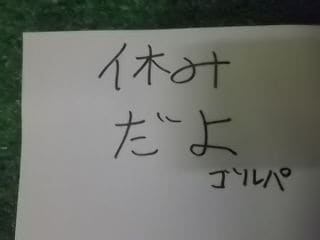 休み
だよ
ゴルパ